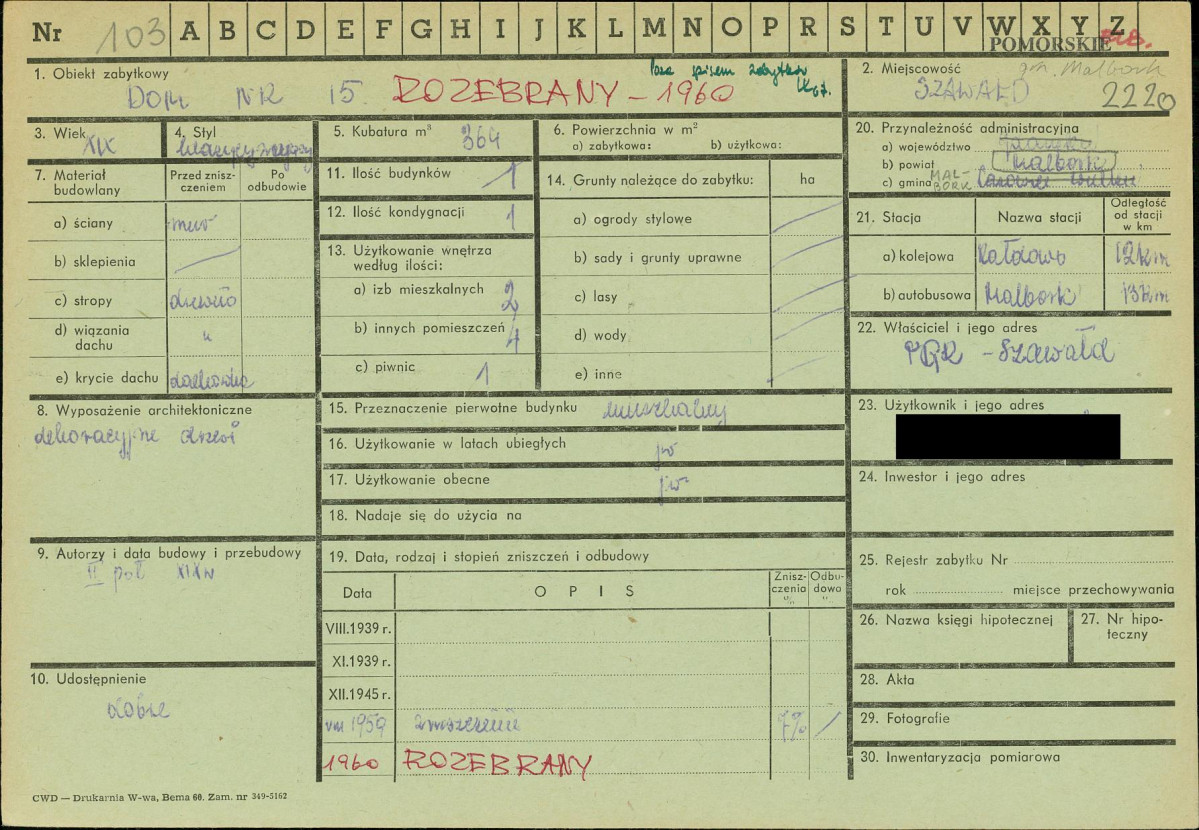 Nr 103 A B C D E F G H I J K L M N O P R S T U V W X Y Z
POMORSKIE
1. Obiekt zabytkowy
DOM NR 15. ROZEBRANY – 1960
Poza spisem zabytków
2. Miejscowość gm. Malbork
SZAWAŁD 2220
3. Wiek XIX
4. Styl
5. Kubatura m³ 364
6. Powierzchnia w m²
a) zabytkowa: b) użytkowa:
7. Materiał budowlany
Przed zniszczeniem
Po odbudowie
a) ściany mur
b) sklepienia
c) stropy drewno
d) wiązania dachu "
e) krycie dachu dachówka
8. Wyposażenie architektoniczne
dekoracyjne drzwi
9. Autorzy i data budowy i przebudowy
II poł XIXw
10. Udostępnienie
dobre
11. Ilość budynków 1
12. Ilość kondygnacji 1
13. Użytkowanie wnętrza według ilości:
a) izb mieszkalnych 2
b) innych pomieszczeń 4
c) piwnic 1
14. Grunty należące do zabytku: ha
a) ogrody stylowe
b) sady i grunty uprawne
c) lasy
d) wody
e) inne
15. Przeznaczenie pierwotne budynku mieszkalny
16. Użytkowanie w latach ubiegłych jw
17. Użytkowanie obecne jw
18. Nadaje się do użycia na
19. Data, rodzaj i stopień zniszczeń i odbudowy
Data OPIS Zniszczenia % Odbudowa %
VIII.1939 r.
XI.1939 r.
XII.1945 r.
VIII 1959 zniszczenie 7%
1960 ROZEBRANY
20. Przynależność administracyjna
a) województwo Gdańsk
b) powiat Malbork
c) gmina MALBORK
21. Stacja Nazwa stacji Odległość od stacji w km
a) kolejowa Kałdowo 12km
b) autobusowa Malbork 13km
22. Właściciel i jego adres
PGR – Szawałd
23. Użytkownik i jego adres
24. Inwestor i jego adres
25. Rejestr zabytku Nr
rok miejsce przechowywania
26. Nazwa księgi hipotecznej
27. Nr hipoteczny
28. Akta
29. Fotografie
30. Inwentaryzacja pomiarowa
CWD — Drukarnia W-wa, Bema 60. Zam. nr 349-5162